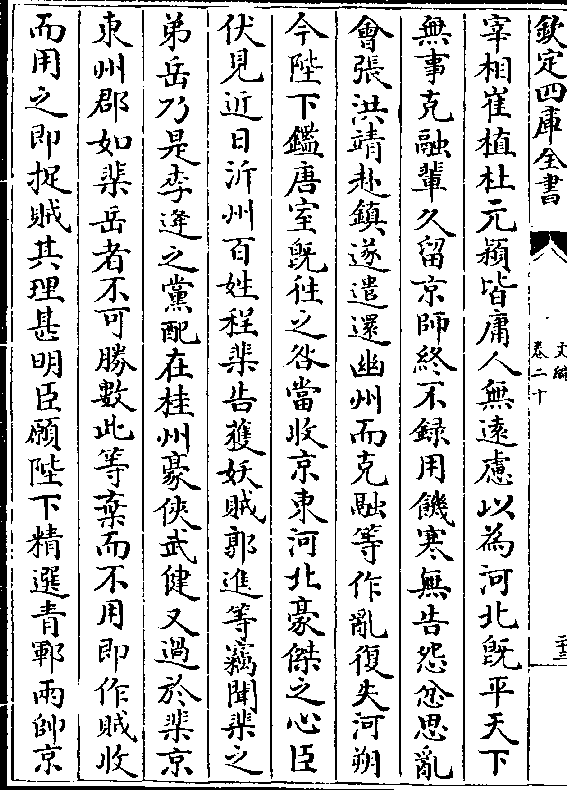 欽定四庫全書
文編
卷二十
三十三
宰相崔植杜元穎皆庸人無逺慮以為河北既平天下
無事克融輩久留京師終不録用饑寒無告怨忿思亂
會張洪靖赴鎮遂遣還幽州而克融等作亂復失河朔
今陛下鑑唐室既徃之咎當收京東河北豪傑之心臣
伏見近日沂州百姓程棐告獲妖賊郭進等竊聞棐之
弟岳乃是李逄之黨配在桂州豪俠武健又過於棐京
東州郡如棐岳者不可勝數此等棄而不用即作賊收
而用之即捉賊其理甚明臣願陛下精選青鄆兩帥京